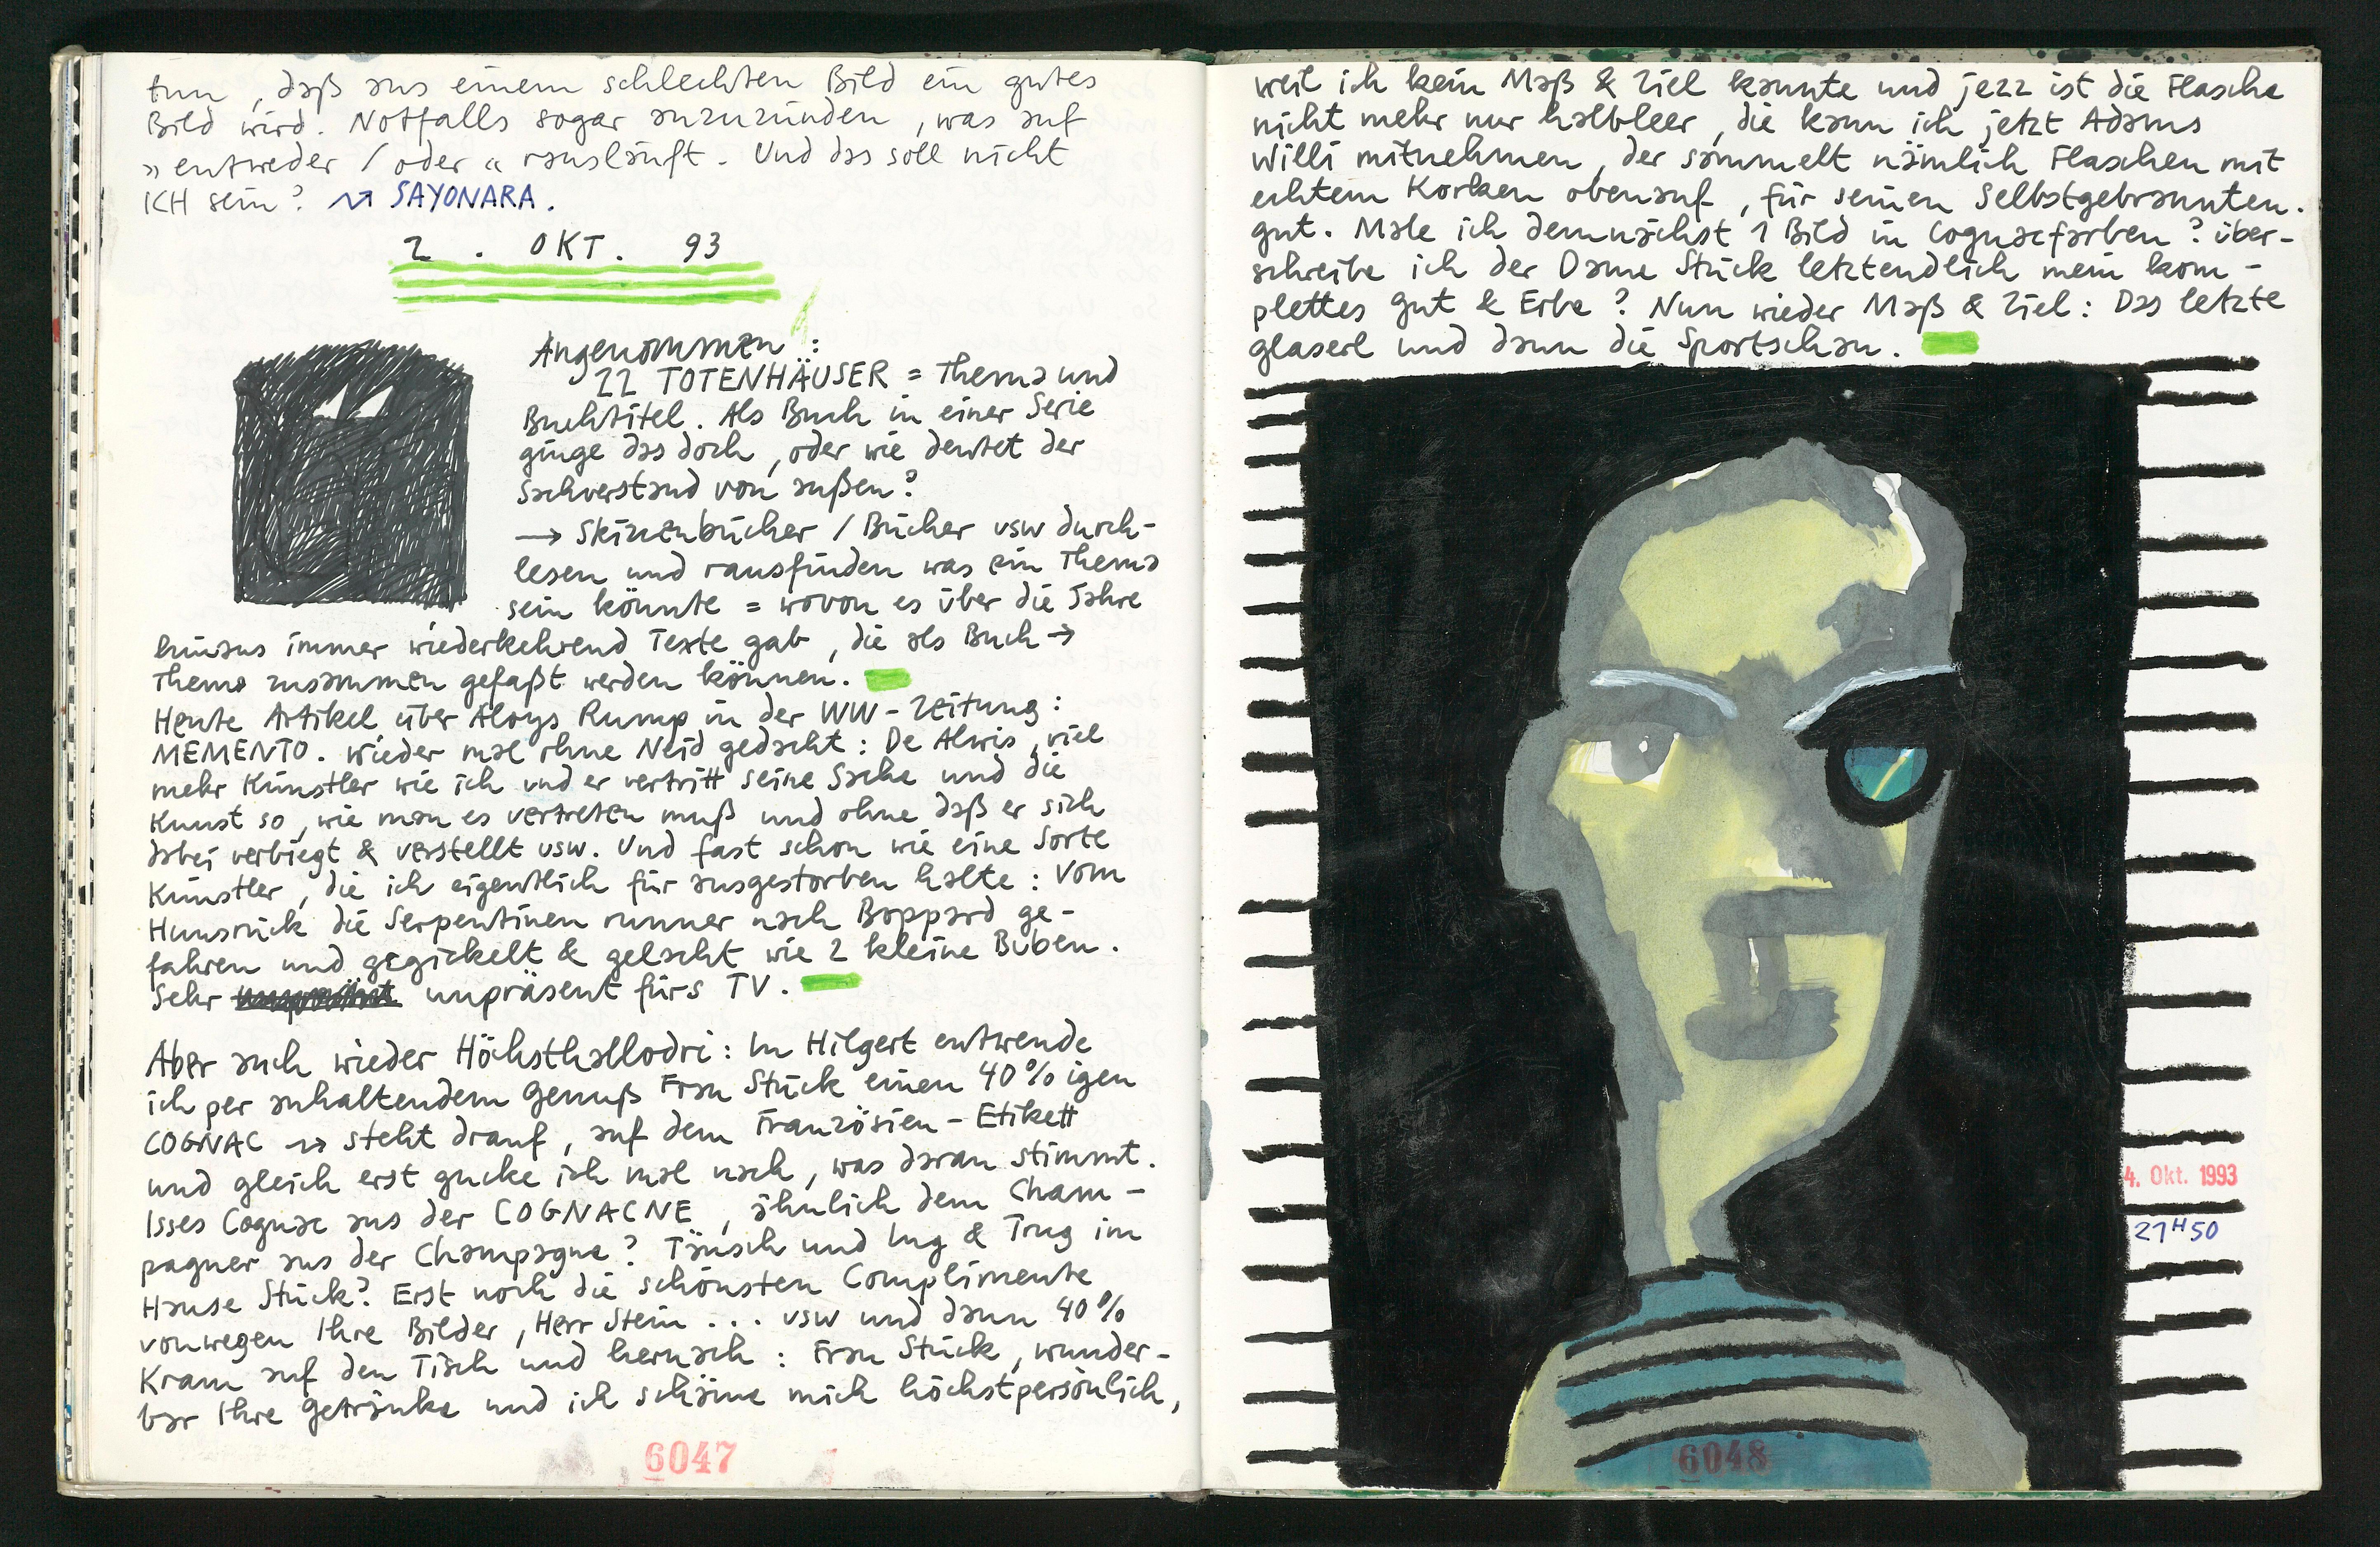 tun, daß aus einem schlechten Bild ein gutes
Bild wird. Notfalls sogar anzuzünden, was auf
»entweder / oder« rausläuft. Und das soll nicht
ICH sein? SAYONARA.
2. OKT. 93
Angenommen:
22 TOTENHÄUSER = Thema und
Buchtitel. Als Buch in einer Serie
ginge das doch, oder wie deutet der
Sachverstand von außen?
→ Skizzenbücher / Bücher usw durch-
lesen und rausfinden was ein Thema
sein könnte = wovon es über die Jahre
hinaus immer wiederkehrend Texte gab, die als Buch →
Thema zusammen gefaßt werden können.
Heute Artikel über Aloys Rump in der WW-Zeitung:
MEMENTO. Wieder mal ohne Neid gedacht: De Alwis, viel
mehr Künstler wie ich und er vertritt seine Sache und die
Kunst so, wie man es vertreten muß und ohne daß er sich
dabei verbiegt & verstellt usw. Und fast schon wie eine Sorte
Künstler, die ich eigentlich für ausgestorben halte: Vom
Hunsrück die Serpentinen runner nach Boppard ge-
fahren und gegickelt & gelacht wie 2 kleine Buben.
Sehr unpräsent fürs TV.
Aber auch wieder Höchsthallodri: In Hilgert entwende
ich per anhaltendem Genuß Frau Stück einen 40%igen
COGNAC steht drauf, auf dem Französien-Etikett
und gleich erst gucke ich mal nach, was daran stimmt.
Isses Cognac aus der COGNACNE, ähnlich dem Cham-
pagner aus der Champagne? Täusch und Lug & Trug im
Hause Stück? Erst noch die schönsten Complimente
vonwegen Ihre Bilder, Herr Stein ... usw und dann 40%
Kram auf den Tisch und hernach: Frau Stück, wunder-
bar Ihre Getränke und ich schäme mich höchstpersönlich,
6047
weil ich kein Maß & Ziel kannte und jezz ist die Flasche
nicht mehr nur halbleer, die kann ich jetzt Adams
Willi mitnehmen, der sammelt nämlich Flaschen mit
echtem Korken obenauf, für seinen Selbstgebrannten.
gut. Male ich demnächst 1 Bild in Cognacfarben? über-
schreibe ich der Dame Stück letztendlich mein kom-
plettes Gut & Erbe? Nun wieder Maß & Ziel: Das letzte
glaserl und dann die Sportschau.
4. Okt. 1993
21H50
6048